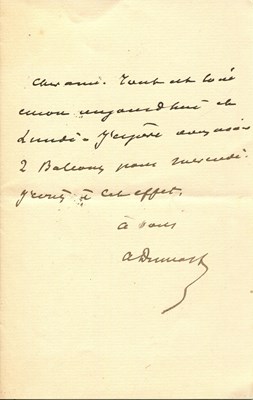 cher ami. Tout est loué
aujourd'hui et
Lundi. J'espère avoir
2 Balcons pour mercredi.
J'écris à cet effet.
à vous
ADumas f